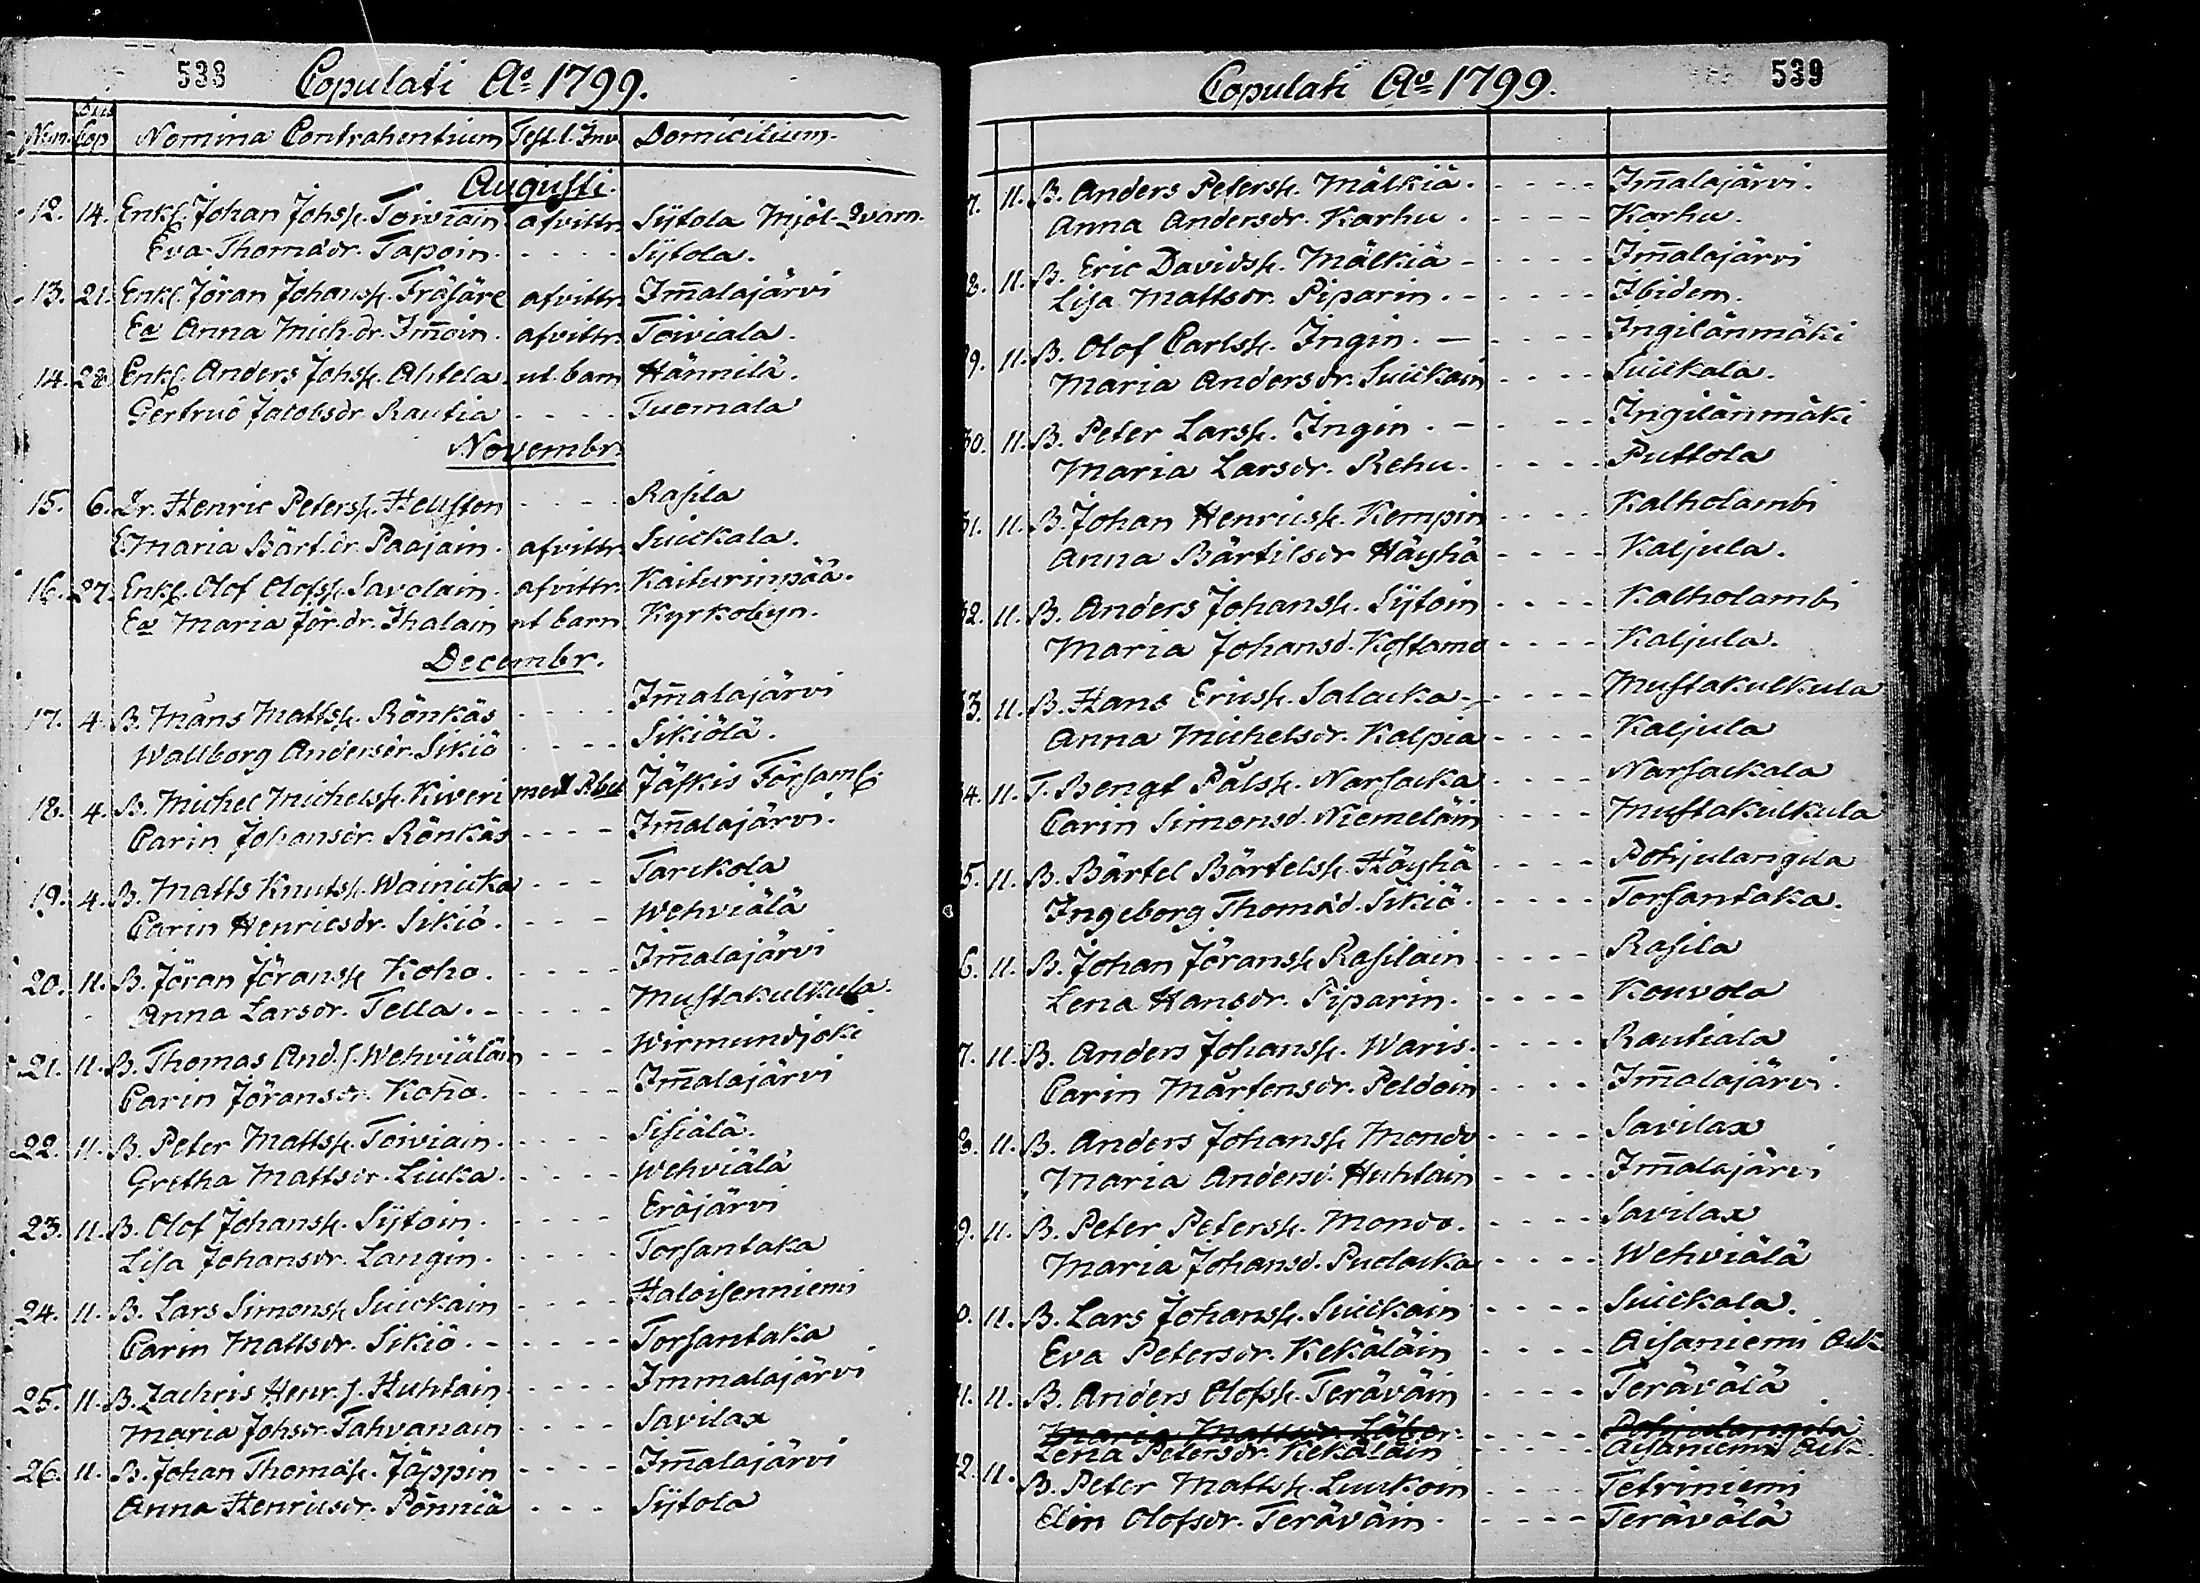 538
Copulati Aº 1799.
Num. Dies Cop Nomina Contrahentium Test. l. Inv. Domicilium.
Augusti.
12. 14. Enkl. Johan Johss. Toiviain afvittr. Sÿtola Mjöl-qvarn.
Eva Thomædr. Tapoin. - - - - Sÿtola.
13. 21. Enkl. Jöran Johanss. Fräsäre afvittr. Im̄alajärvi
Ea Anna Mich.dr. Im̄oin. afvittr. Toiviala.
14. 28 Enkl. Anders Johss. Ahtela ut. barn Hännilä.
Gertrud Jacobsdr. Rautia - - - - Tuomala
Novembr.
15. 6. Dr. Henric Peterss. Hellsten - - - - Rasila
E. Maria Bärt.dr. Paajain. afvittr. Suickala.
16. 27. Enkl. Olof Olofss. Savolain. afvittr. Kaiturinpää.
Ea Maria Jör.dr. Ihalain ut barn Kyrkobyn.
Decembr.
17. 4. B. Måns Mattss. Rönkäs - - - - Im̄alajärvi
Wallborg Andersdr. Sikiö - - - - Sikiölä.
18. 4. B. Michel Michelss. Kiveri med Abet Jäskis Församl.
Carin Johansdr. Rönkäs - - - - Im̄alajärvi.
19. 4. B. Matts Knutss. Wainicka - - - Tarckola
Carin Henricsdr. Sikiö. - - - Wehviälä
20. 11. B. Jöran Jöranss. Koho. - - - - Im̄alajärvi
Anna Larsdr. Tella. - - - - - Mustakulkula.
21. 11. B. Thomas And.s. Wehviäläin - - - Wirmundjoki
Carin Jöransdr. Koho. - - - - Im̄alajärvi
22. 11. B. Peter Mattss. Toiviain. - - - - Sisiälä.
Gretha Mattsdr. Liuka. - - - - Wehviälä
23. 11. B. Olof Johanss. Sÿtoin. - - - - Eräjärvi
Lisa Johansdr. Langin. - - - - Torsantaka
24. 11. B. Lars Simonss. Suickain - - - - Haloisenniemi
Carin Mattsdr. Sikiö. - - - - - Torsantaka
25. 11. B. Zachris Henr.s. Huhtain. - - - - Immalajärvi
Maria Johsdr. Tahvanain - - - - Savilax
26. 11. B. Johan Thomæs. Jäppin - - - - Im̄alajärvi
Anna Henricsdr. Pönniä - - - Sÿtola
539
Copulati Aº 1799.
7. 11. B. Anders Peterss. Mälkiä. - - - - Im̄alajärvi.
Anna Andersdr. Karhu. - - - - Karhu.
8. 11. B. Eric Davidss. Mälkiä - - - - - Im̄alajärvi
Lisa Mattsdr. Piparin. - - - - - Ibidem.
9. 11. B. Olof Carlss. Ingin. - - - - - Ingilänmäki
Maria Andersdr. Suickain - - - - Suickala.
30. 11. B. Peter Larss. Ingin. - - - - Ingilänmäki
Maria Larsdr. Rehu. - - - - Puttola
31. 11. B. Johan Henricss. Kempin - - - - Kalholambi
Anna Bärtilsdr Häyhä - - - - Kaljula.
32. 11. B. Anders Johanss. Sÿtoin - - - - Kalholambi
Maria Johansd. Kostamo - - - - Kaljula.
33. 11. B. Hans Ericss. Salacka - - - - - Mustakulkula
Anna Michelsdr. Kolpia - - - - Kaljula
34. 11. T. Bengt Pålss. Narsacka - - - - Narsackala
Carin Simonsd. Niemeläin - - - - Mustakulkula
5. 11. B. Bärtel Bärtelss. Häyhä - - - - Pohjulangila
Ingeborg Thomæd. Sikiö. - - - - Torsantaka.
6. 11. B. Johan Jöranss. Rasilain - - - - Rasila
Lena Hansdr. Piparin. - - - - Kouvola
7. 11. B. Anders Johanss. Waris. - - - - Rautiala
Carin Mårtensdr. Peldoin - - - - Im̄alajärvi.
8. 11. B. Anders Johanss. Mondo - - - - Savilax
Maria Andersd. Huhtain - - - - Im̄alajärvi
9. 11. B. Peter Peterss. Mondo. - - - - Savilax
Maria Johansd. Pudacka - - - - Wehviälä
0. 11. B. Lars Johanss. Suickain - - - - Suickala.
Eva Petersdr. Kekäläin - - - - Aisaniemi
1. 11. B. Anders Olofss. Teräväin - - - - Terävälä
Maria Mattsdr. - - - - Pohjolangila
Lena Petersdr. Kekäläin - - - - Aisaniemi
2. 11. B. Peter Mattss. Luukoin - - - - Tetriniemi
Elin Olofsdr. Teräväin. - - - - Terävälä